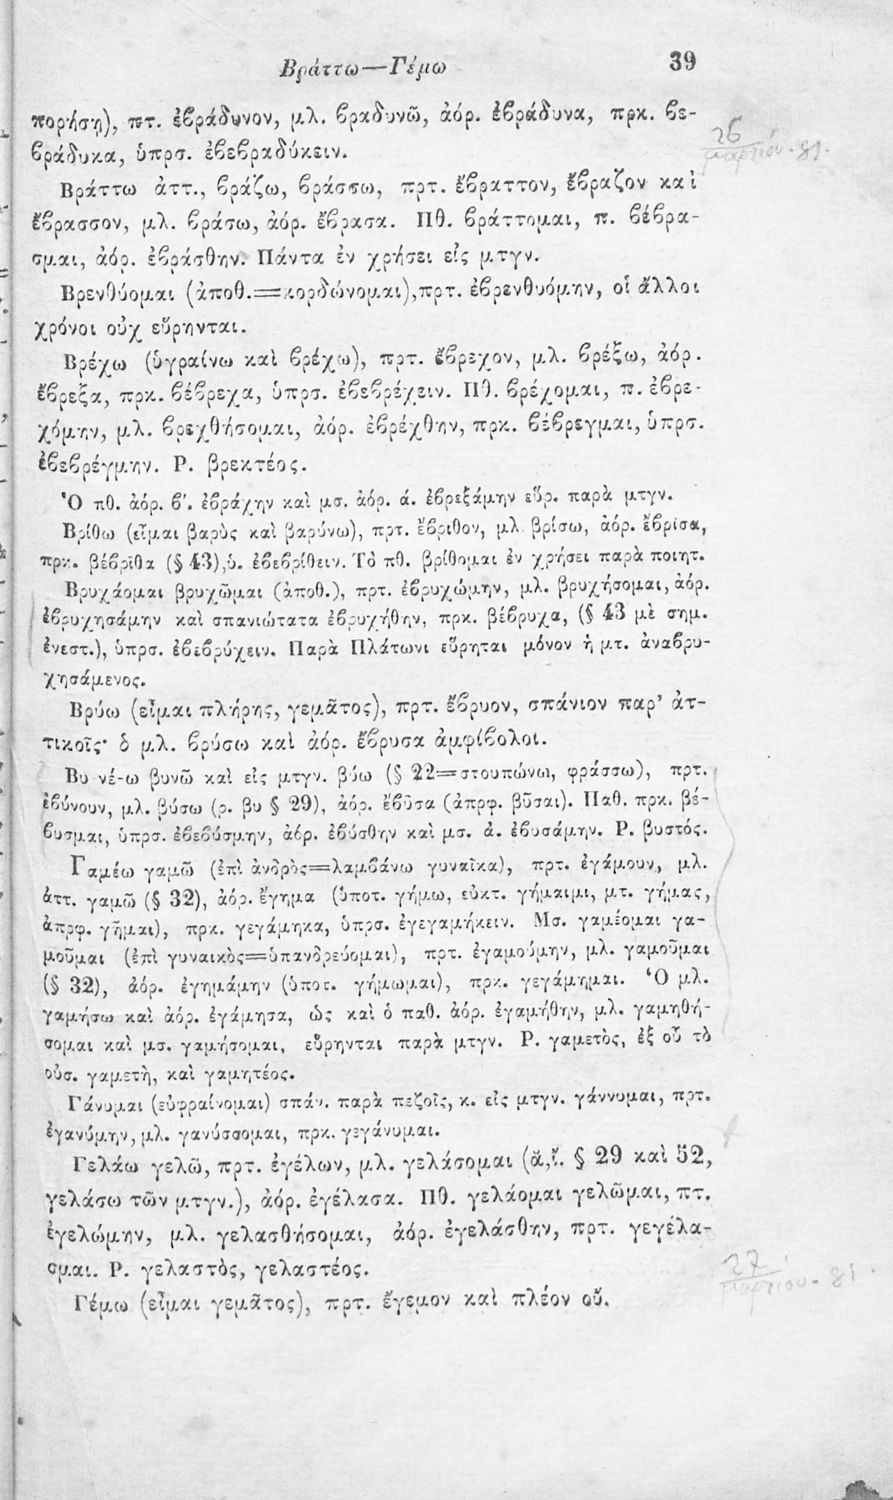 Βράττω—Γέμω 39
πορήσῃ), πτ. ἐβράδυνον, μλ. βραδυνῶ, ἀόρ. ἐβράδυνα, πρκ. βε-
βράδυκα, ὑπρσ. ἐβεβραδύκειν.
26
μαρτίου. 81.
Βράττω ἀττ., βράζω, βράσσω, πρτ. ἔβραττον, ἔβραζον καὶ
ἔβρασσον, μλ. βράσω, ἀόρ. ἔβρασα. Πθ. βράττομαι, π. βέβρα-
σμαι, ἀόρ. ἐβράσθην. Πάντα ἐν χρήσει εἰς μτγν.
Βρενθύομαι (ἀποθ.=κορδώνομαι),πρτ. ἐβρενθυόμην, οἱ ἄλλοι
χρόνοι οὐχ εὕρηνται.
Βρέχω (ὑγραίνω καὶ βρέχω), πρτ. ἔβρεχον, μλ. βρέξω, ἀόρ.
ἔβρεξα, πρκ. βέβρεχα, ὑπρσ. ἐβεβρέχειν. Πθ. βρέχομαι, π. ἐβρε-
χόμην, μλ. βρεχθήσομαι, ἀόρ. ἐβρέχθην, πρκ. βέβρεγμαι, ὑπρσ.
ἐβεβρέγμην. Ρ. βρεκτέος.
Ὁ πθ. ἀόρ. β'. ἐβράχην καὶ μσ. ἀόρ. ά. ἐβρεξάμην εὕρ. παρὰ μτγν.
Βρίθω (εἶμαι βαρὺς καὶ βαρύνω), πρτ. ἔβριθον, μλ. βρίσω, ἀόρ. ἔβρισα,
πρκ. βέβριθα (§ 43),ὑ. ἐβεβρίθειν. Τὸ πθ. βρίθομαι ἐν χρήσει παρὰ ποιητ.
Βρυχάομαι βρυχῶμαι (ἀποθ.), πρτ. ἐβρυχώμην, μλ. βρυχήσομαι, ἀόρ.
ἐβρυχησάμην καὶ σπανιώτατα ἐβρυχήθην, πρκ. βέβρυχα, (§ 43 μὲ σημ.
ἐνεστ.), ὑπρσ. ἐβεβρύχειν. Παρὰ Πλάτωνι εὕρηται μόνον ἡ μτ. ἀναβρυ-
χησάμενος.
Βρύω (εἶμαι πλήρης, γεμᾶτος), πρτ. ἔβρυον, σπάνιον παρ' ἀτ-
τικοῖς· ὁ μλ. βρύσω καὶ ἀόρ. ἔβρυσα ἀμφίβολοι.
Βυ νέ-ω βυνῶ καὶ εἰς μτγν. βύω (§ 22=στουπώνω, φράσσω), πρτ.
ἐβύνουν, μλ. βύσω (ρ. βυ § 29), ἀόρ. ἔβυσα (ἀπρφ. βῦσαι). Παθ. πρκ. βέ-
βυσμαι, ὑπρσ. ἐβεβύσμην, ἀόρ. ἐβύσθην καὶ μσ. ἀ. ἐβυσάμην. Ρ. βυστός.
Γαμέω γαμῶ (ἐπὶ ἀνδρὸς=λαμβάνω γυναῖκα), πρτ. ἐγάμουν, μλ.
ἀττ. γαμῶ (§ 32), ἀόρ. ἔγημα (ὑποτ. γήμω, εὐκτ. γήμαιμι, μτ. γήμας,
ἀπρφ. γῆμαι), πρκ. γεγάμηκα, ὑπρσ. ἐγεγαμήκειν. Μσ. γαμέομαι γα-
μοῦμαι (ἐπὶ γυναικὸς=ὑπανδρεύομαι), πρτ. ἐγαμούμην, μλ. γαμοῦμαι
(§ 32), ἀόρ. ἐγημάμην (ὑποτ. γήμωμαι), πρκ. γεγάμημαι. Ὁ μλ.
γαμήσω καὶ ἀόρ. ἐγάμησα, ὡς καὶ ὁ παθ. ἀόρ. ἐγαμήθην, μλ. γαμηθή-
σομαι καὶ μσ. γαμήσομαι, εὕρηνται παρὰ μτγν. Ρ. γαμετὸς, ἐξ οὗ τὸ
οὐσ. γαμετὴ, καὶ γαμητέος.
Γάνυμαι (εὐφραίνομαι) σπάν. παρὰ πεζοῖς, κ. εἰς μτγν. γάννυμαι, πρτ.
ἐγανύμην, μλ. γανύσσομαι, πρκ. γεγάνυμαι.
Γελάω γελῶ, πρτ. ἐγέλων, μλ. γελάσομαι § 29 καὶ 52,
γελάσω τῶν μτγν.), ἀόρ. ἐγέλασα. Πθ. γελάομαι γελῶμαι, πτ.
ἐγελώμην, μλ. γελασθήσομαι, ἀόρ. ἐγελάσθην, πρτ. γεγέλα-
σμαι. Ρ. γελαστὸς, γελαστέος.
27
μαρτίου. 81.
Γέμω (εἶμαι γεμᾶτος), πρτ. ἔγεμον καὶ πλέον οὔ.